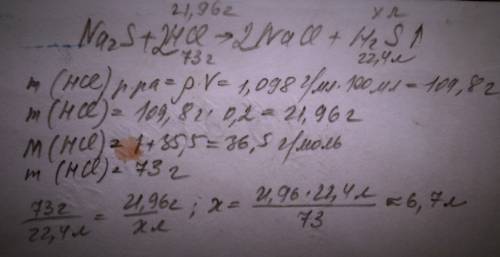 21,96г хл
Na₂S + 2HCl → 2NaCl + H₂S↑
73г 22,4л
m (HCl) р-ра = ρ·V = 1,098 г/мл · 100 мл = 109,8 г
m (HCl) = 109,8г · 0,2 = 21,96г
M (HCl) = 1 + 35,5 = 36,5 г/моль
m (HCl) = 73 г
73г/22,4л = 21,96г/хл; x = 21,96·22,4л/73 ≈ 6,7л